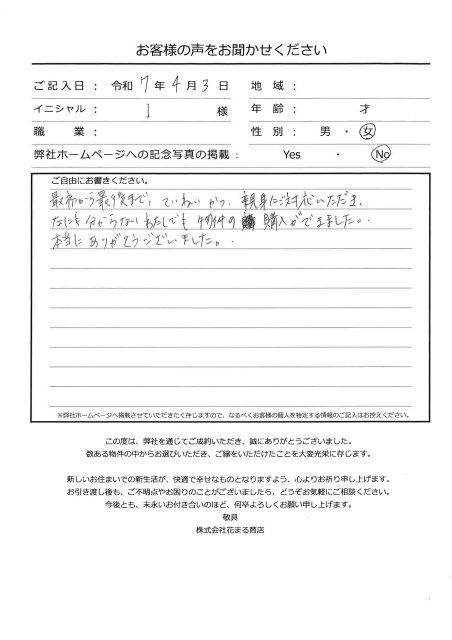 お客様の声をお聞かせください
ご記入日： 令和 7 年 4 月 3 日 地 域：
イニシャル： I 様 年 齢： 才
職 業： 性 別： 男 ・ 女
弊社ホームページへの記念写真の掲載： Yes ・ No
ご自由にお書きください。
最初から最後まで、ていねいかつ、親身にご対応いただき、
なにも分からないわたしでも 物件の購入ができました。
本当にありがとうございました。
※弊社ホームページへ掲載させていただきたく存じますので、なるべくお客様の個人を特定する情報のご記入はお控えください。
この度は、弊社を通じてご成約いただき、誠にありがとうございました。
数ある物件の中からお選びいただき、ご縁をいただけたことを大変光栄に存じます。
新しいお住まいでの新生活が、快適で幸せなものとなりますよう、心よりお祈り申し上げます。
お引き渡し後も、ご不明点やお困りのことがございましたら、どうぞお気軽にご相談ください。
今後とも、末永いお付き合いのほど、何卒よろしくお願い申し上げます。
敬具
株式会社花まる商店